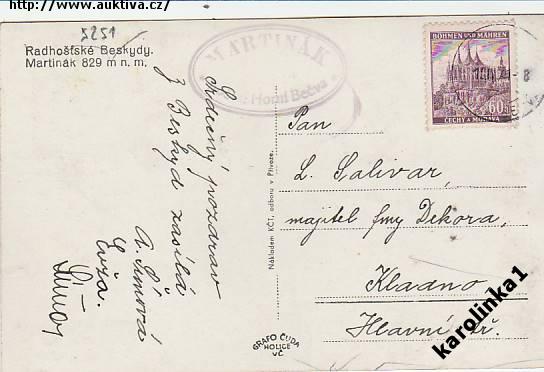 http://www.auktiva.cz/
5251
Radhošťské Beskydy.
Martinák 829 m n. m.
MARTINÁK
Horní Bečva
Srdečný pozdrav
z Beskyd zasílá
A. Šímová
Evža.
BÖHMEN UND MÄHREN
60 h
ČECHY A MORAVA
Pan
L. Salivar,
majitel fmy Dekora,
Kladno
Hlavní tř.
Nákladem KČT, odboru v Přívoze.
GRAFO ČUDA
HOLICE
VČ
karolinka1